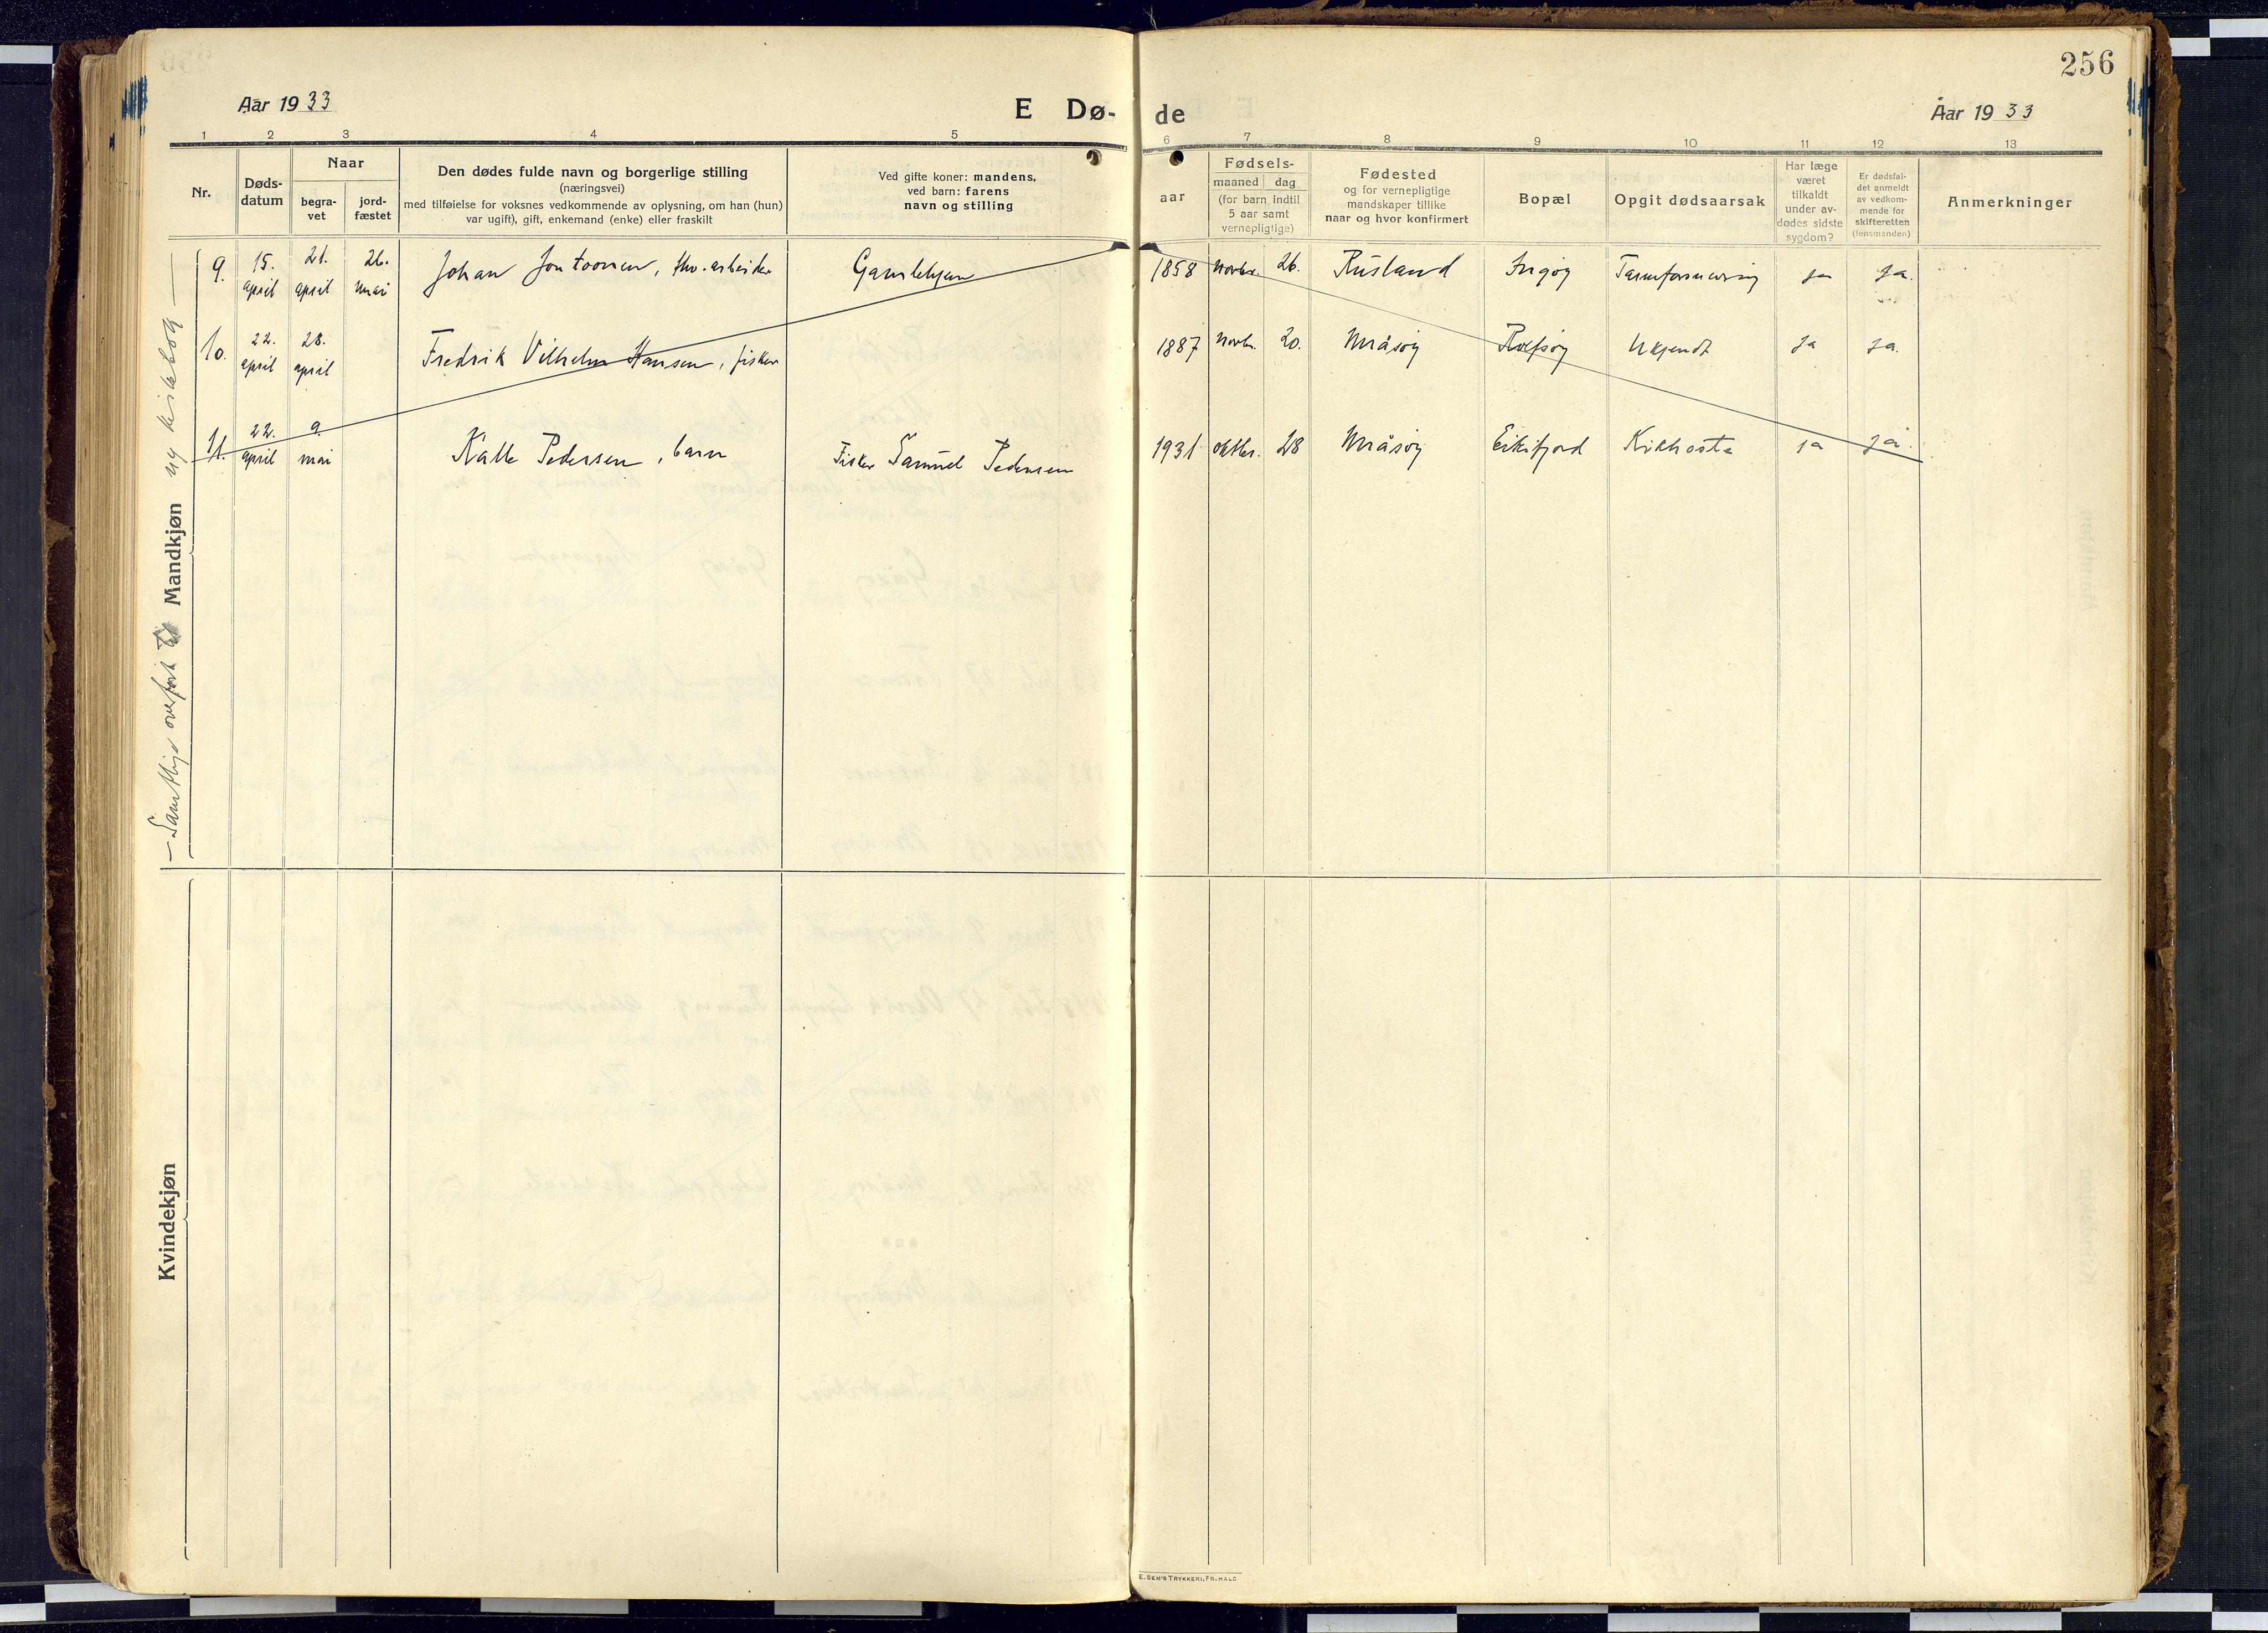 256
Aar 1933
E Dø-
de
Aar 1933
1 2 3 4 5 6 7 8 9 10 11 12 13
Nr.
Døds-
datum
Naar
begra-
vet
jord-
fæstet
Den dødes fulde navn og borgerlige stilling
(næringsvei)
med tilføielse for voksnes vedkommende av oplysning, om han (hun)
var ugift), gift, enkemand (enke) eller fraskilt
Ved gifte koner: mandens,
ved barn: farens
navn og stilling
aar
Fødsels-
maaned dag
(for barn indtil
5 aar samt
vernepligtige)
Fødested
og for vernepligtige
mandskaper tillike
naar og hvor konfirmert
Bopæl
Opgit dødsaarsak
Har læge
været
tilkaldt
under av-
dødes sidste
sygdom?
Er dødsfal-
det anmeldt
av vedkom-
mende for
skifteretten
(lensmanden)
Anmerkninger
9. 15. april 21. april 26. mai Johan arbeider Gamlehjem 1858 novbr. 26. Rusland Ingøy ja ja.
10. 22. april 28. april Fredrik Vilhelm Hansen, fisker 1887 novbr. 20. Måsøy Rolfsøy Ukjendt ja ja.
11. 22. april 9. mai Kalle Pedersen, barn Fisker Samuel Pedersen 1931 oktbr. 28 Måsøy Eikifjord Kikhoste ja ja.
Mandkjøn
— Samtlige overført til ny kirkebok —
Kvindekjøn
E. SEM'S TRYKKERI, FR.HALD